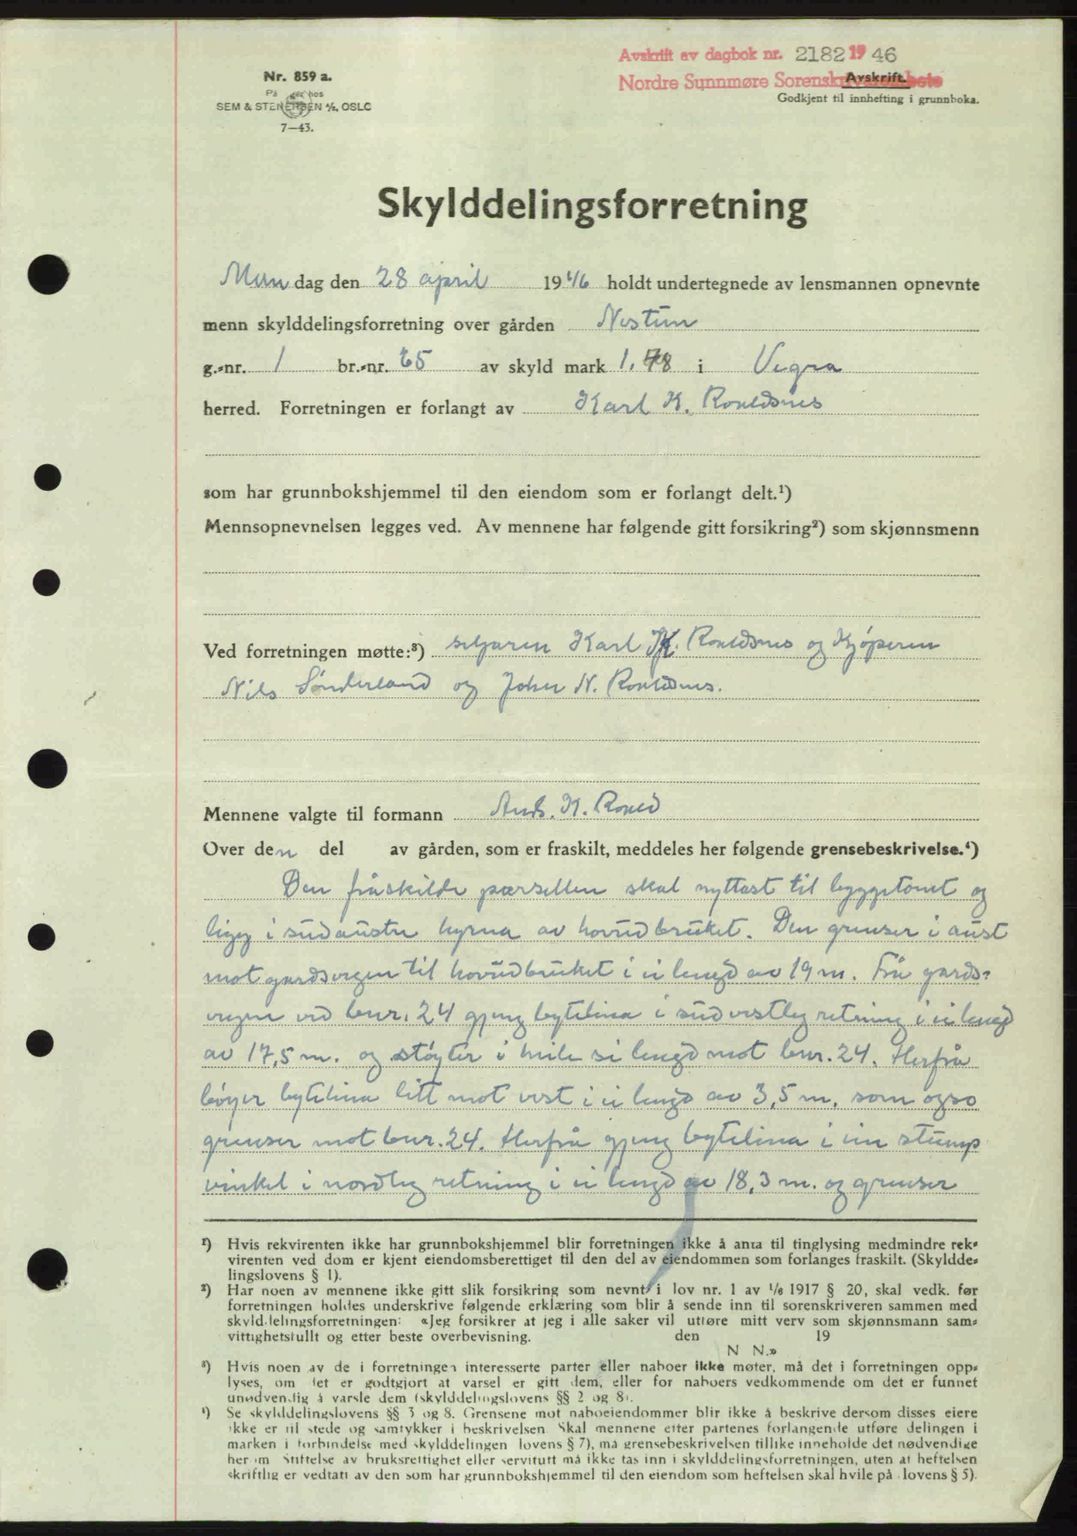 Avskrift av dagbok nr. 2182 19 46
Nordre Sunnmøre Sorenskriverembete
Avskrift.
Godkjent til innhefting i grunnboka.
Nr. 859 a.
På lager hos
SEM & STENERSEN A/S, OSLO
7—43.
Skylddelingsforretning
Mundag den 28 april 1946 holdt undertegnede av lensmannen opnevnte
menn skylddelingsforretning over gården Nistun
g.-nr. 1 br.-nr. 65 av skyld mark 1,78 i Vigra
herred. Forretningen er forlangt av Karl K. Roaldsnes
som har grunnbokshjemmel til den eiendom som er forlangt delt.¹)
Mennsopnevnelsen legges ved. Av mennene har følgende gitt forsikring²) som skjønnsmenn
Ved forretningen møtte:³) seljaren Karl K. Roaldsnes og Kjøperen
Nils Sønderland og Johan N. Roaldsnes.
Mennene valgte til formann Ands. K. Roald
Over den del av gården, som er fraskilt, meddeles her følgende grensebeskrivelse.⁴)
Den fråskilde parsellen skal nyttast til byggetomt og
ligg i sudaustre hyrna av hovudbruket. Den grenser i aust
mot gardsvegen til hovudbruket i ei lengd av 19 m. Frå gards-
vegen ved bnr. 24 gjeng bytelina i sudvestleg retning i ei lengd
av 17,5 m. og støyter i heile si lengd mot bnr. 24. Herfrå
bøyer bytelina litt mot vest i ei lengd av 3,5 m. som ogso
grenser mot bnr. 24. Herfrå gjeng bytelina i ein stump
vinkel i nordleg retning i ei lengd av 18,3 m. og grenser
¹) Hvis rekvirenten ikke har grunnbokshjemmel blir forretningen ikke å anta til tinglysing medmindre rek-
virenten ved dom er kjent eiendomsberettiget til den del av eiendommen som forlanges fraskilt. (Skyldde-
lingslovens § 1).
²) Har noen av mennene ikke gitt slik forsikring som nevnt i lov nr. 1 av 1/6 1917 § 20, skal vedk. før
forretningen holdes underskrive følgende erklæring som blir å sende inn til sorenskriveren sammen med
skylddelingsforretningen: «Jeg forsikrer at jeg i alle saker vil utføre mitt verv som skjønnsmann sam-
vittighetsfullt og etter beste overbevisning. den 19
N N.»
³) Hvis noen av de i forretningen interesserte parter eller naboer ikke møter, må det i forretningen opp-
lyses, om det er godtgjort at varsel er gitt dem, eller for naboers vedkommende om det er funnet
unødvendig å varsle dem (skylddelingslovens §§ 2 og 8).
⁴) Se skylddelingslovens §§ 3 og 8. Grensene mot naboeiendommer blir ikke å beskrive dersom disses eiere
ikke er til stede og samtykker i beskrivelsen. Skal mennene etter partenes forlangende utføre delingen i
marken i forbindelse med skylddelingen (lovens § 7), må grensebeskrivelsen tillike inneholde det nødvendige
her om. Stiftelse av bruksrettighet eller servitutt må ikke tas inn i skylddelingsforretningen, uten at heftelsen
skriftlig er vedtatt av den som har grunnbokshjemmel til den eiendom som heftelsen skal hvile på (lovens § 5).